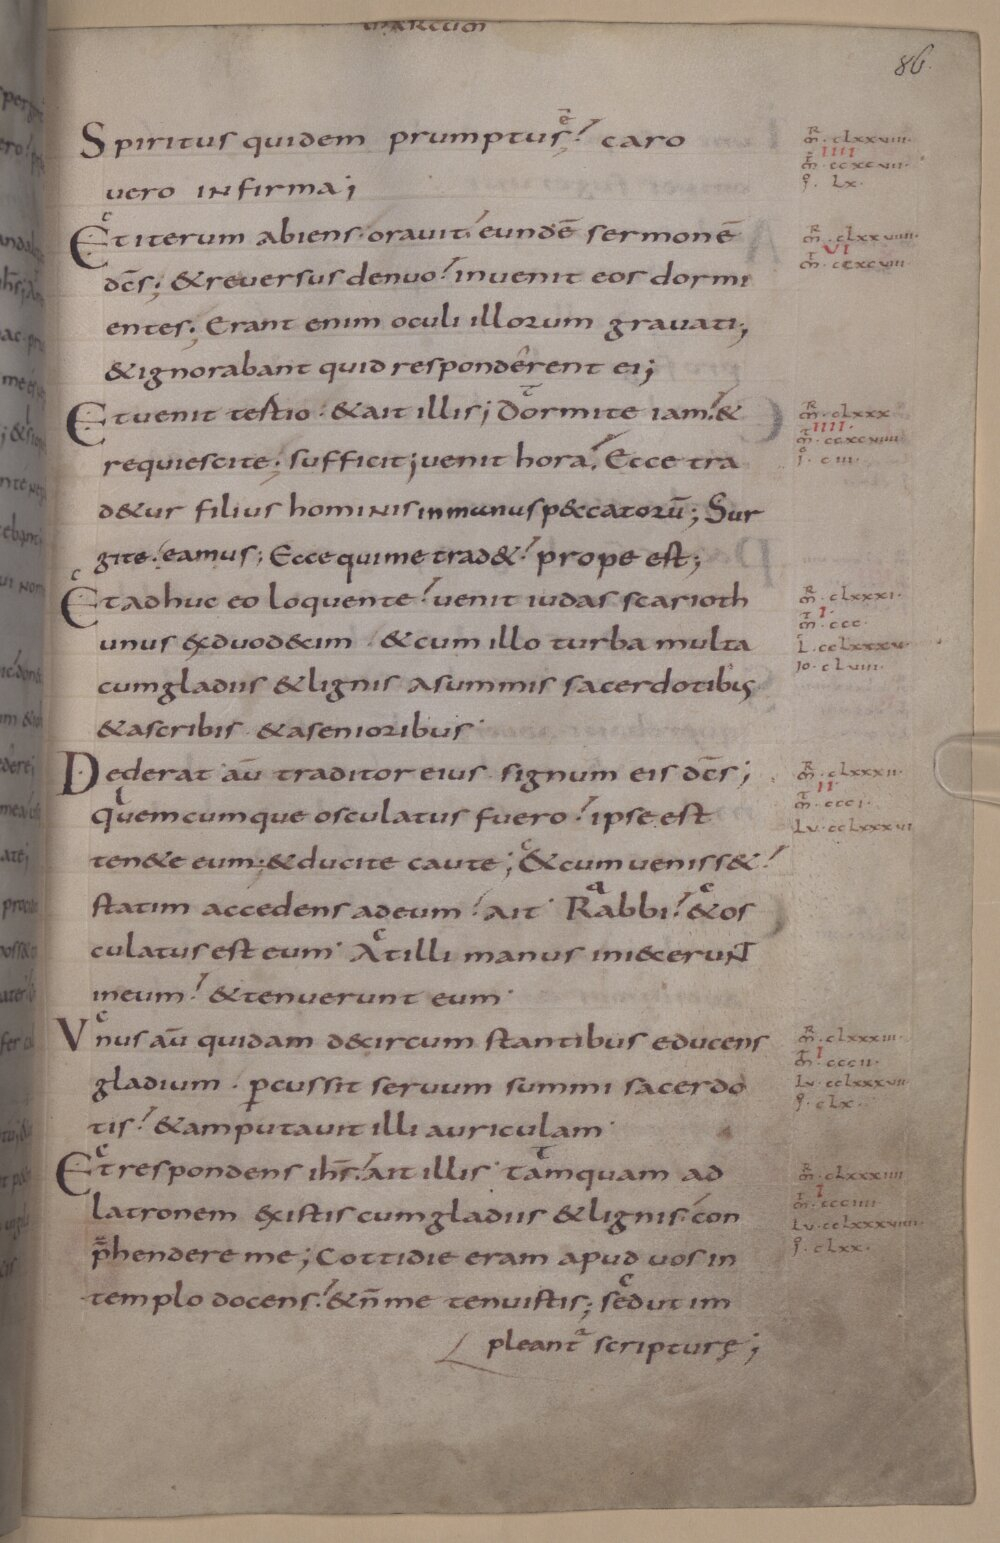 MARCUM
86.
Spiritus quidem prumptus ē; caro
vero infirma;
Et iterum abiens oravit. eundē sermonē
dc̄s; & reversus denuo invenit eos dormi
entes; Erant enim oculi illorum gravati;
& ignorabant quid responderent ei;
Et venit tertio. & ait illis; Dormite iam. &
requiescite. sufficit; venit hora. Ecce tra
d&ur filius hominis in manus p&catorū; Sur
gite. eamus; Ecce qui me trad& prope est;
Et adhuc eo loquente venit iudas scarioth
unus ex duod&im & cum illo turba multa
cum gladiis & lignis a summis sacerdotibus
& a scribis & a senioribus.
Dederat aū traditor eius signum eis dc̄s;
Quemcumque osculatus fuero ipse est
ten&e eum; & ducite caute; & cum veniss&
statim accedens ad eum ait. Rabbi & os
culatus est eum. At illi manus ini&cerunt
in eum & tenuerunt eum.
Unus aū quidam d&circumstantibus educens
gladium. ꝑcussit servum summi sacerdo
tis & amputavit illi auriculam.
Et respondens ih̄s. ait illis. tamquam ad
latronem existis cum gladiis & lignis con
p̄hendere me; Cottidie eram apud vos in
templo docens. & n̄ me tenuistis; sed ut im
pleant scripturę;
m̄. clxxviii.
IIII
m̄. ccxcvii.
lx.
m̄. clxxviiii.
VI
m̄. ccxcviii.
m̄. clxxx.
IIII.
m̄. ccxcviiii
ciii.
m̄. clxxxi.
I.
m̄. ccc.
L. cclxxxv
io. clviii.
m̄. clxxxii.
II
m̄. ccci.
Lv. cclxxxvi
m̄. clxxxiii.
I
m̄. cccii.
Lv. cclxxxvii
clx.
m̄. clxxxiiii
I
m̄. ccciiii.
Lv. cclxxxviiii.
clxx.